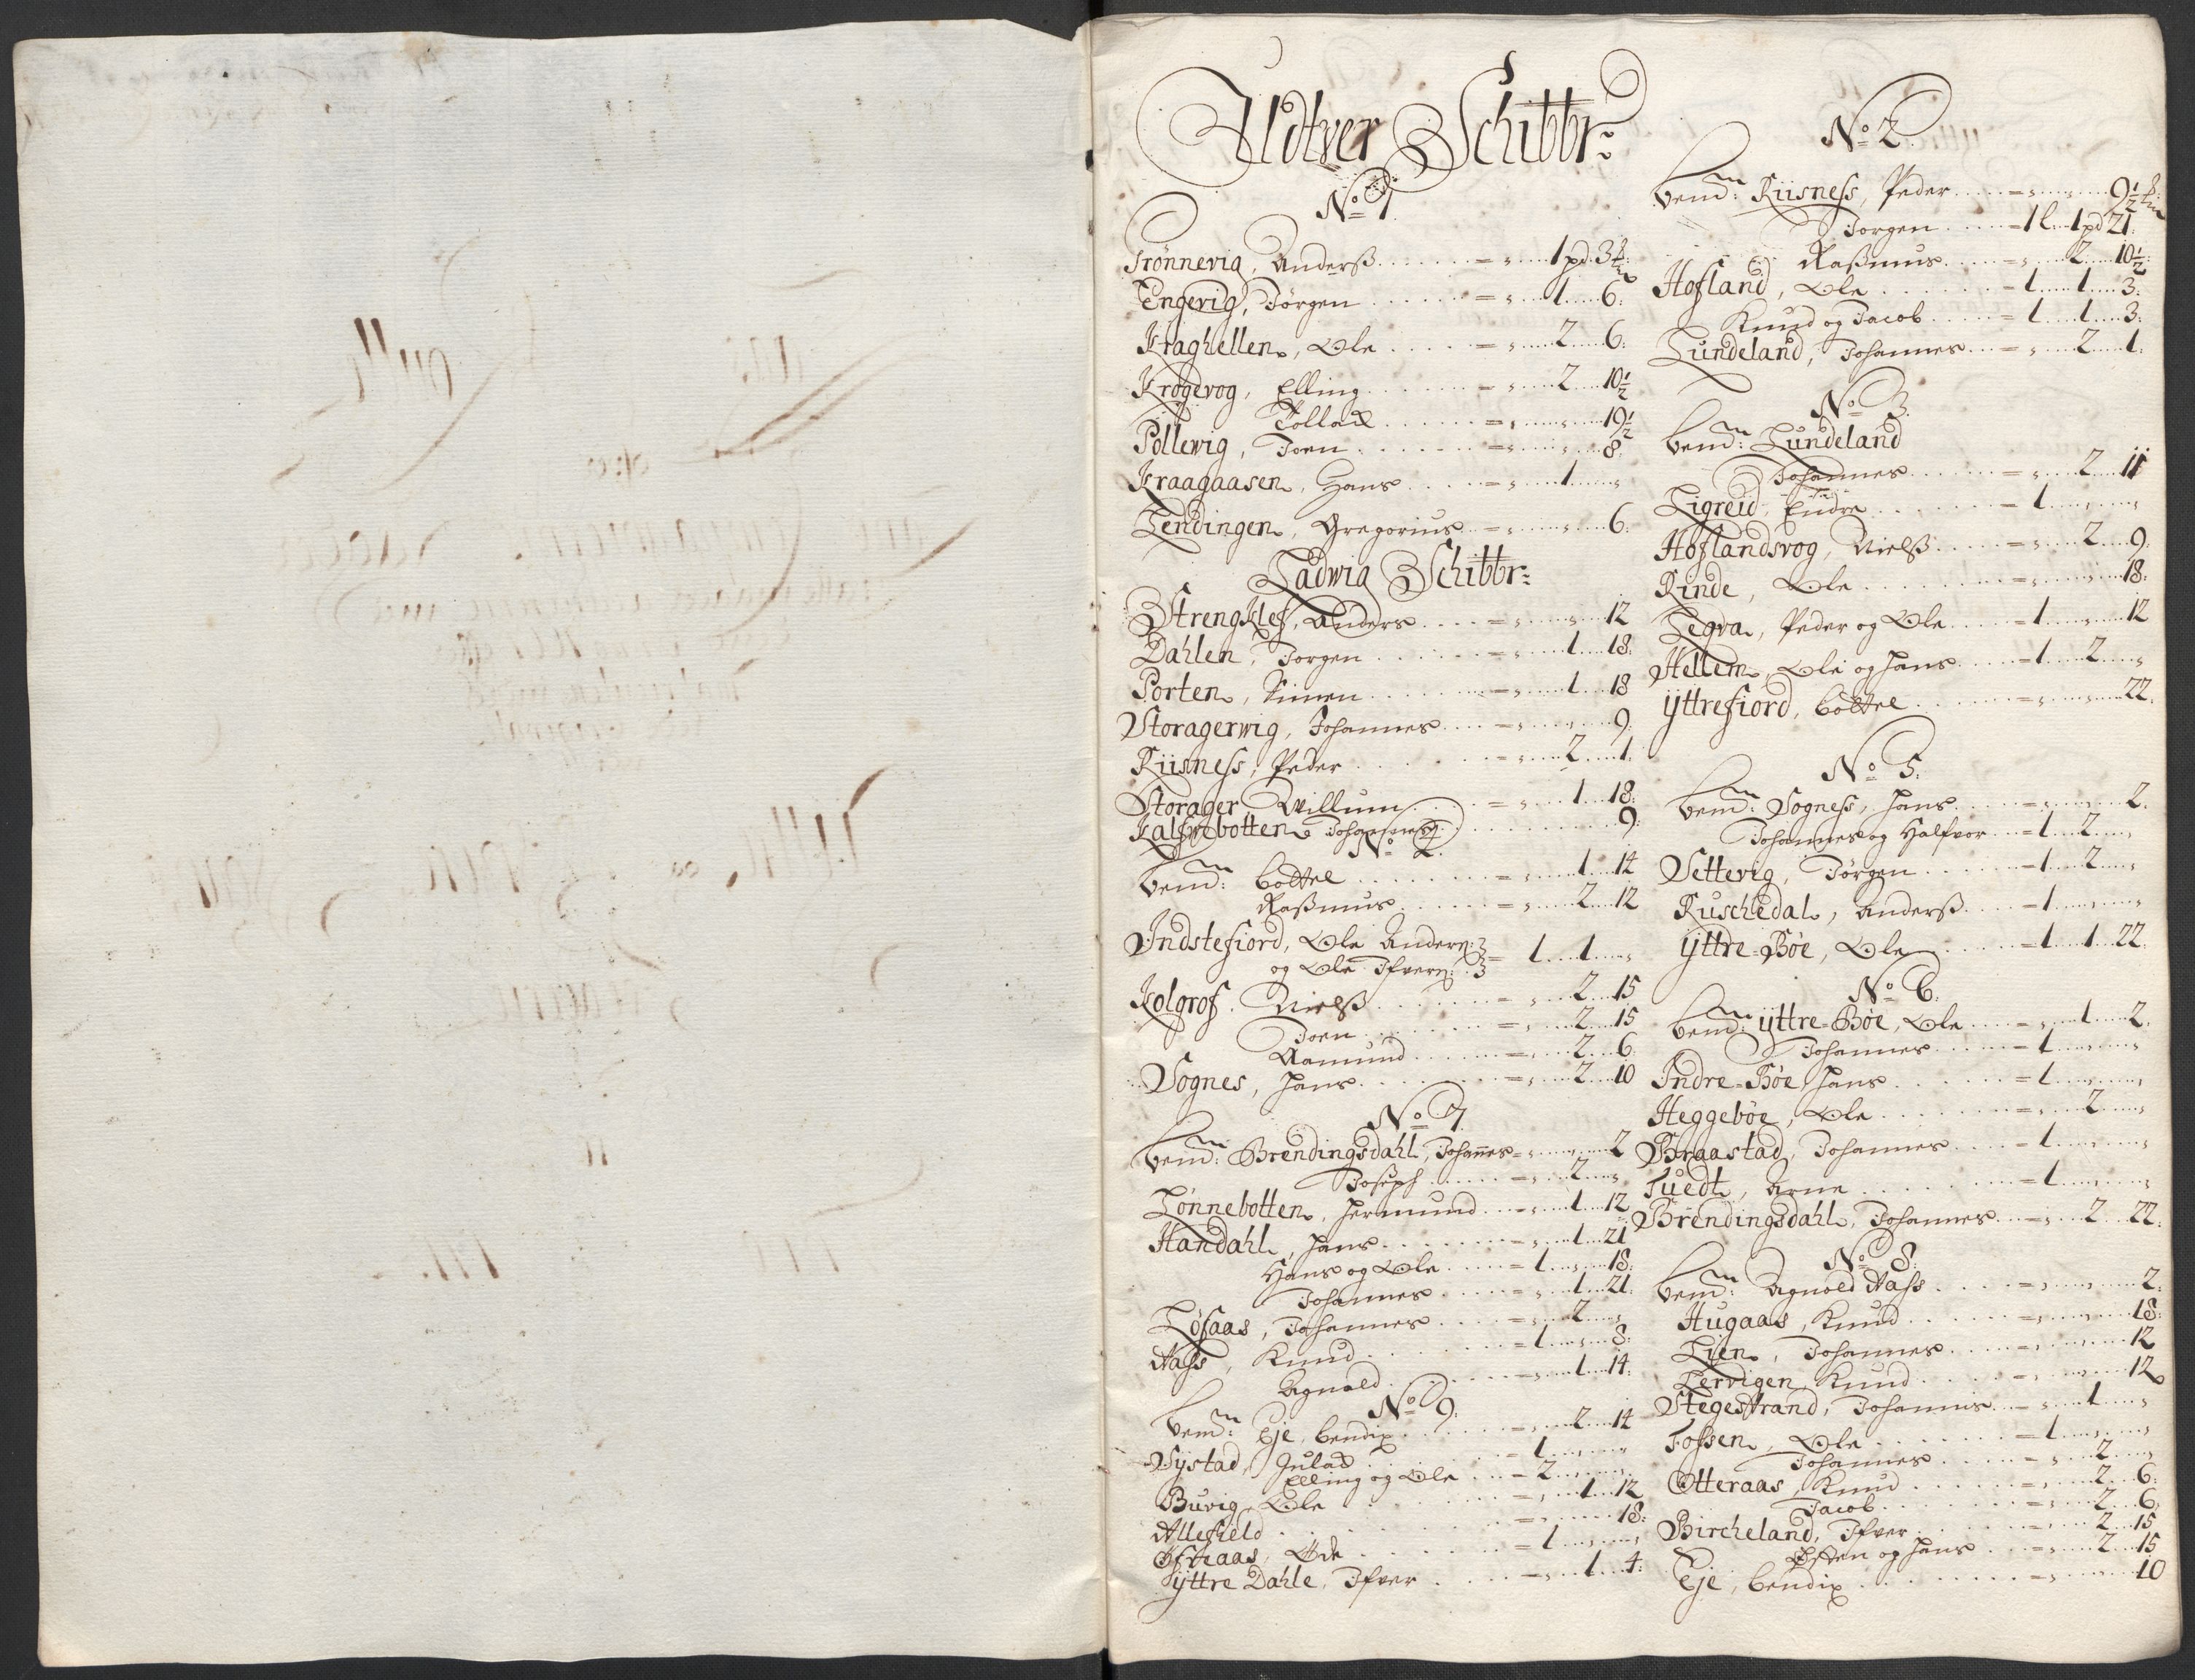 Udtver Schibbr:
No 1.
Trönnevig, Anderß . . . . . = „ . . 1 pd. 3 ℔
Engevig, Jörgen . . . . . = „ . . 1 . . 6:
Kraghellen, Ole . . . . = „ . . 2 . . 6:
Krogevog, Elling . . . . = „ . . 2 . . 10½
Tollac . . . . = „ . . „ . . 19½
Pollewig, Joen . . . . = „ . . „ . . 8
Kraagaasen, Hans . . . . = „ . . 1 . . „
Lendingen, Gregorius . . = „ . . „ . . 6:
Ladwig Schibbr:
Strengklef, Anders . . . . = „ . . „ . . 12
Dahlen, Jorgen . . . . = „ . . 1 . . 18:
Porten, Simen . . . . = „ . . 1 . . 18
Storagerwig, Johannes . . . = „ . . „ . . 9.
Riisness, Peder . . . . = „ . . 2 . . 1.
Storager Willum . . . . = „ . . 1 . . 18:
Kalfwebotten Johannes . . . . 9:
No 4.
bemd: bottel . . . . = „ . . 1 . . 14
Raßmus . . . . = „ . . 2 . . 12
Indstefiord, Ole Anders:
og Ole Ifvers: = 1 . . 1 . . „
Kolgrof. Nielß . . . . = „ . . 2 . . 15
Joen . . . . = „ . . 2 . . 15
Aamund . . . . = „ . . 2 . . 6
Sognes, Hans . . . . = „ . . 2 . . 10
No 7.
bemd: Brendingsdahl, Johannes = „ . . „ . . 2
Joseph . . . . = „ . . 2 . . „
Lonnebotten, Hermund . . = „ . . 1 . . 12
Handahl, Hans . . . . = „ . . 1 . . 21
Hans og Ole . . . . = 1 . . „ . . 18:
Johannes . . . . = „ . . 1 . . 21.
Löfaas, Johannes . . . . = „ . . 2 . . „
Aass, Knud . . . . = 1 . . „ . . 8:
Agnold . . . . = „ . . 1 . . 14.
No 9:
bemd: Eje, bendix . . . . = „ . . 2 . . 14
Systad, Gulac . . . . = 1 . . „ . . „
Elling og Ole . . = 2 . . „
Buvig Ole . . . . = „ . . 1 . . 12
Allefield . . . . = „ . . „ . . 18:
Ode . . . . = 1 . . „ . . „
yttre Dahle, Ifver . . . . = „ . . 1 . . 4:
No 2.
bemd: Riisness, Peder . . . . = „ . . „ . . 9½ ℔
Jorgen . . . . = 1 l. 1 pd 21.
Raßmus . . . . = „ . . 2 . . 10½:
Hofland, Ole . . . . = 1 . . 1 . . 3:
Knud og Jacob . . . . = 1 . . 1 . . 3:
Lundeland, Johannes . . . = „ . . 2 . . 1.
No 3.
bemd: Lundeland
Johannes . . . . = „ . . 2 . . 11
Ligreid, Endre . . . . = 1 . . „ . . „
Hoflandsvog, Nielß . . . . = „ . . 2 . . 9:
Rinde, Ole . . . . = „ . . „ . . 18:
Legva, Peder og Ole . . . . = 1 . . „ . . 12
Hellem, Ole og Hans . . . . = 1 . . 2 . . „
yttrefiord, bottel . . . . = „ . . „ . . 22.
No 5:
bemd: Sogness, Hans . . . . = „ . . „ . . 2.
Johannes og Halfvor . . = 1 . . 2 . . „
Settevig, Jörgen . . . . = 1 . . 2 . . „
Ruschedal, Anderß . . . . = 1 . . „ . . „
yttre-Böe, Ole . . . . = 1 . . 1 . . 22.
No 6:
bemd: yttre-Böe, Ole . . . . = „ . . 1 . . 2.
Johannes . . . . = 1 . . „ . . „
Indre-Böe, Hans . . . . = 1 . . „ . . „
Heggeböe, Ole . . . . = „ . . 2 . . „
Braastad, Johannes . . . . = 1 . . „ . . „
Tuedt, Arne . . . . = 1 . . „ . . „
Brendingsdahl, Johannes . . = „ . . 2 . . 22.
No 8:
bemd: Agnold Aass . . . . = „ . . „ . . 2:
Hugaas, Knud . . . . = „ . . „ . . 18:
Lien, Johannes . . . . = „ . . „ . . 12
Lervigen, Knud . . . . = „ . . „ . . 12
Stegestrand, Johannes . . = „ . . 1 . . „
Fossen, Ole . . . . = 1 . . „ . . „
Johannes . . . . = „ . . 2 . . „
Otteraas, Knud . . . . = „ . . 2 . . 6:
Jacob . . . . = „ . . 2 . . 6.
Bircheland, Ifver . . . . = „ . . 2 . . 15
Östen og Hans . . . = „ . . 2 . . 15
Eje, bendix . . . . = „ . . „ . . 10